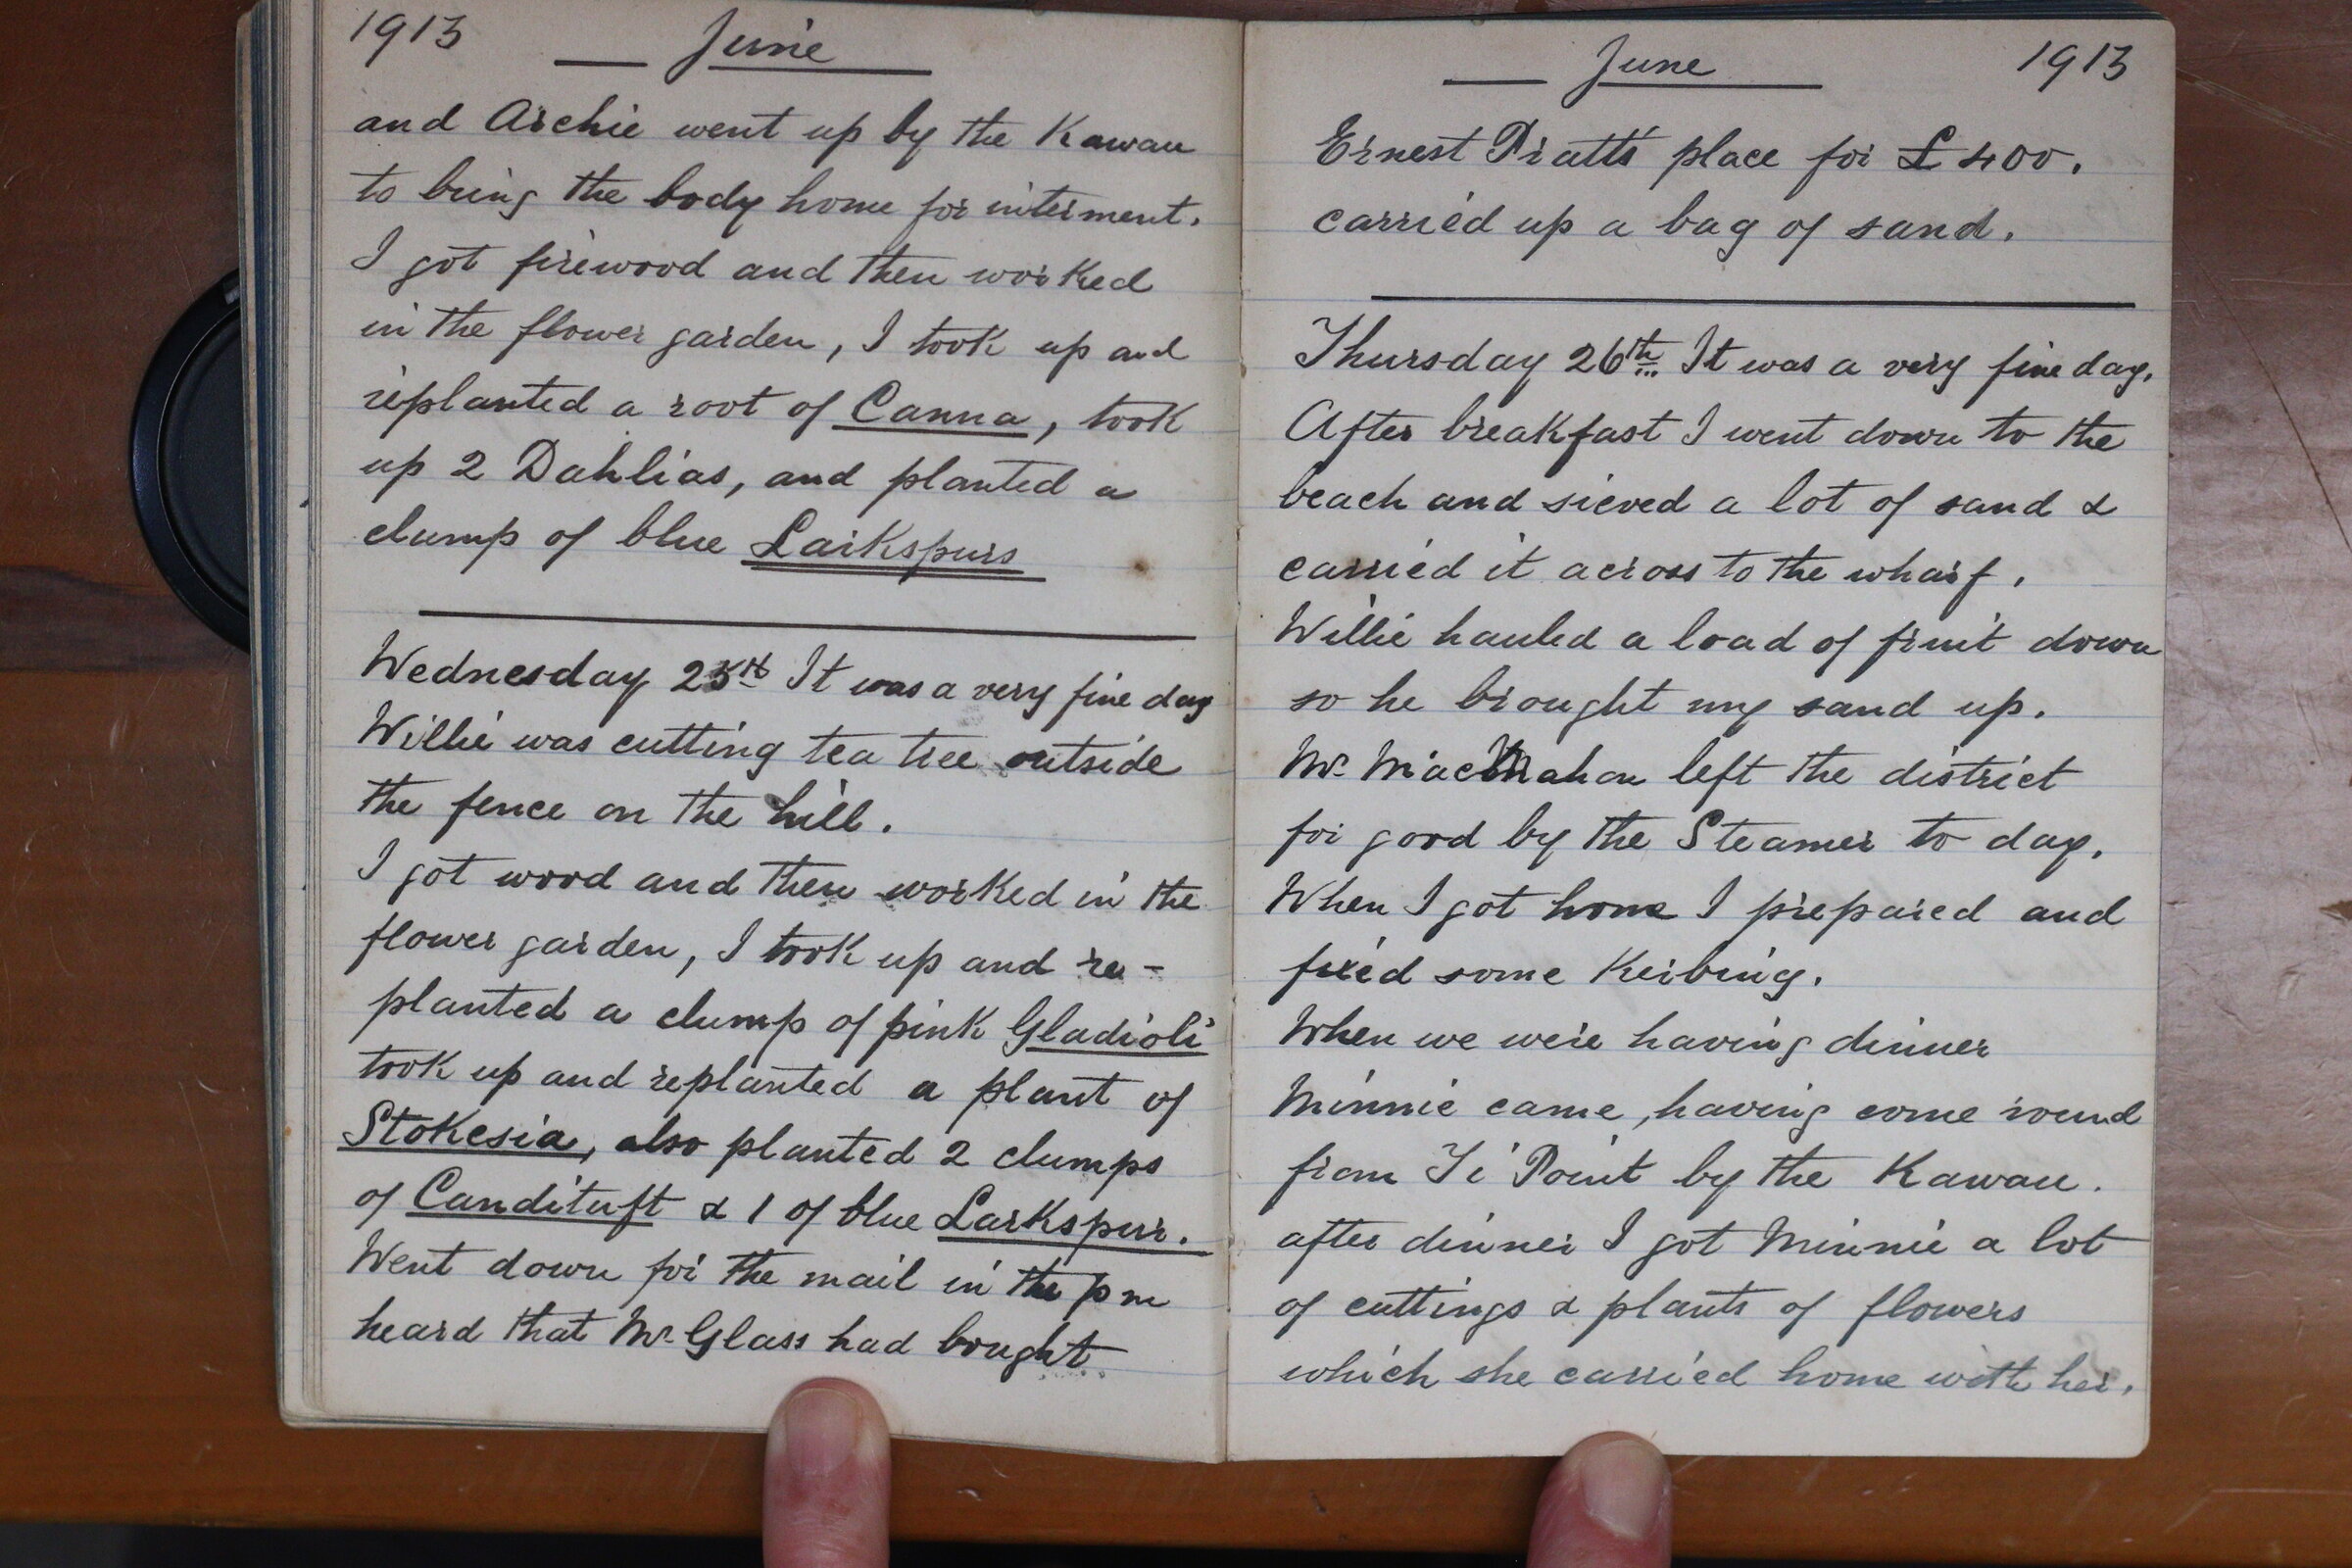 1913 June
and Archie went up by the Kawau
to bring the body home for interment.
I got firewood and then worked
in the flower garden, I took up and
replanted a root of Canna, took
up 2 Dahlias, and planted a
clump of blue Larkspurs
Wednesday 25th It was a very fine day
Willie was cutting tea tree outside
the fence on the hill.
I got wood and then worked in the
flower garden, I took up and re-
planted a clump of pink Gladioli
took up and replanted a plant of
Stokesia, also planted 2 clumps
of Candituft & 1 of blue Larkspur.
Went down for the mail in the pm
heard that Mr Glass had bought
June 1913
Ernest Pratt's place for £400.
carried up a bag of sand.
Thursday 26th It was a very fine day.
After breakfast I went down to the
beach and sieved a lot of sand &
carried it across to the wharf.
Willie hauled a load of fruit down
so he brought my sand up.
Mr MacMahon left the district
for good by the Steamer to day.
When I got home I prepared and
fixed some Kerbing.
When we were having dinner
Minnie came, having come round
from Ti Point by the Kawau.
after dinner I got Minnie a lot
of cuttings & plants of flowers
which she carried home with her.